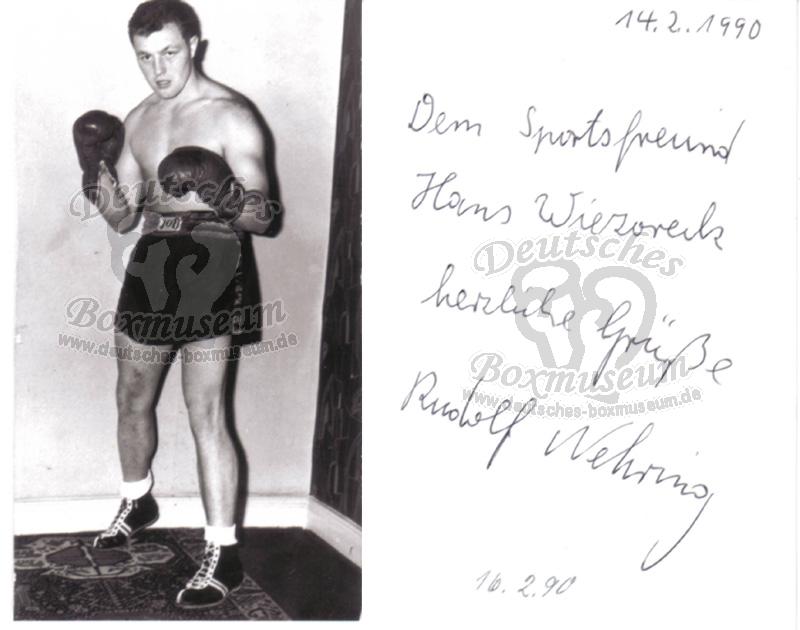 14.2.1990
Dem Sportsfreund
Hans Wiezoreck
herzliche Grüße
Rudolf Nehring
16.2.90
Deutsches
Boxmuseum
www.deutsches-boxmuseum.de
Deutsches
Boxmuseum
www.deutsches-boxmuseum.de